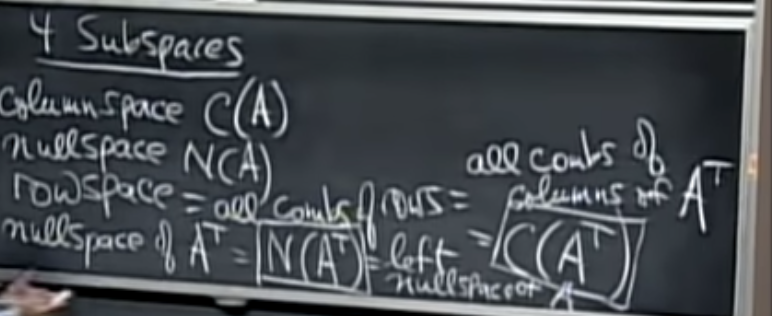 4 Subspaces
Column space C(A)
nullspace N(A)
rowspace = all combs of rows = all combs of columns of Aᵀ = C(Aᵀ)
nullspace of Aᵀ = N(Aᵀ) = left nullspace of A